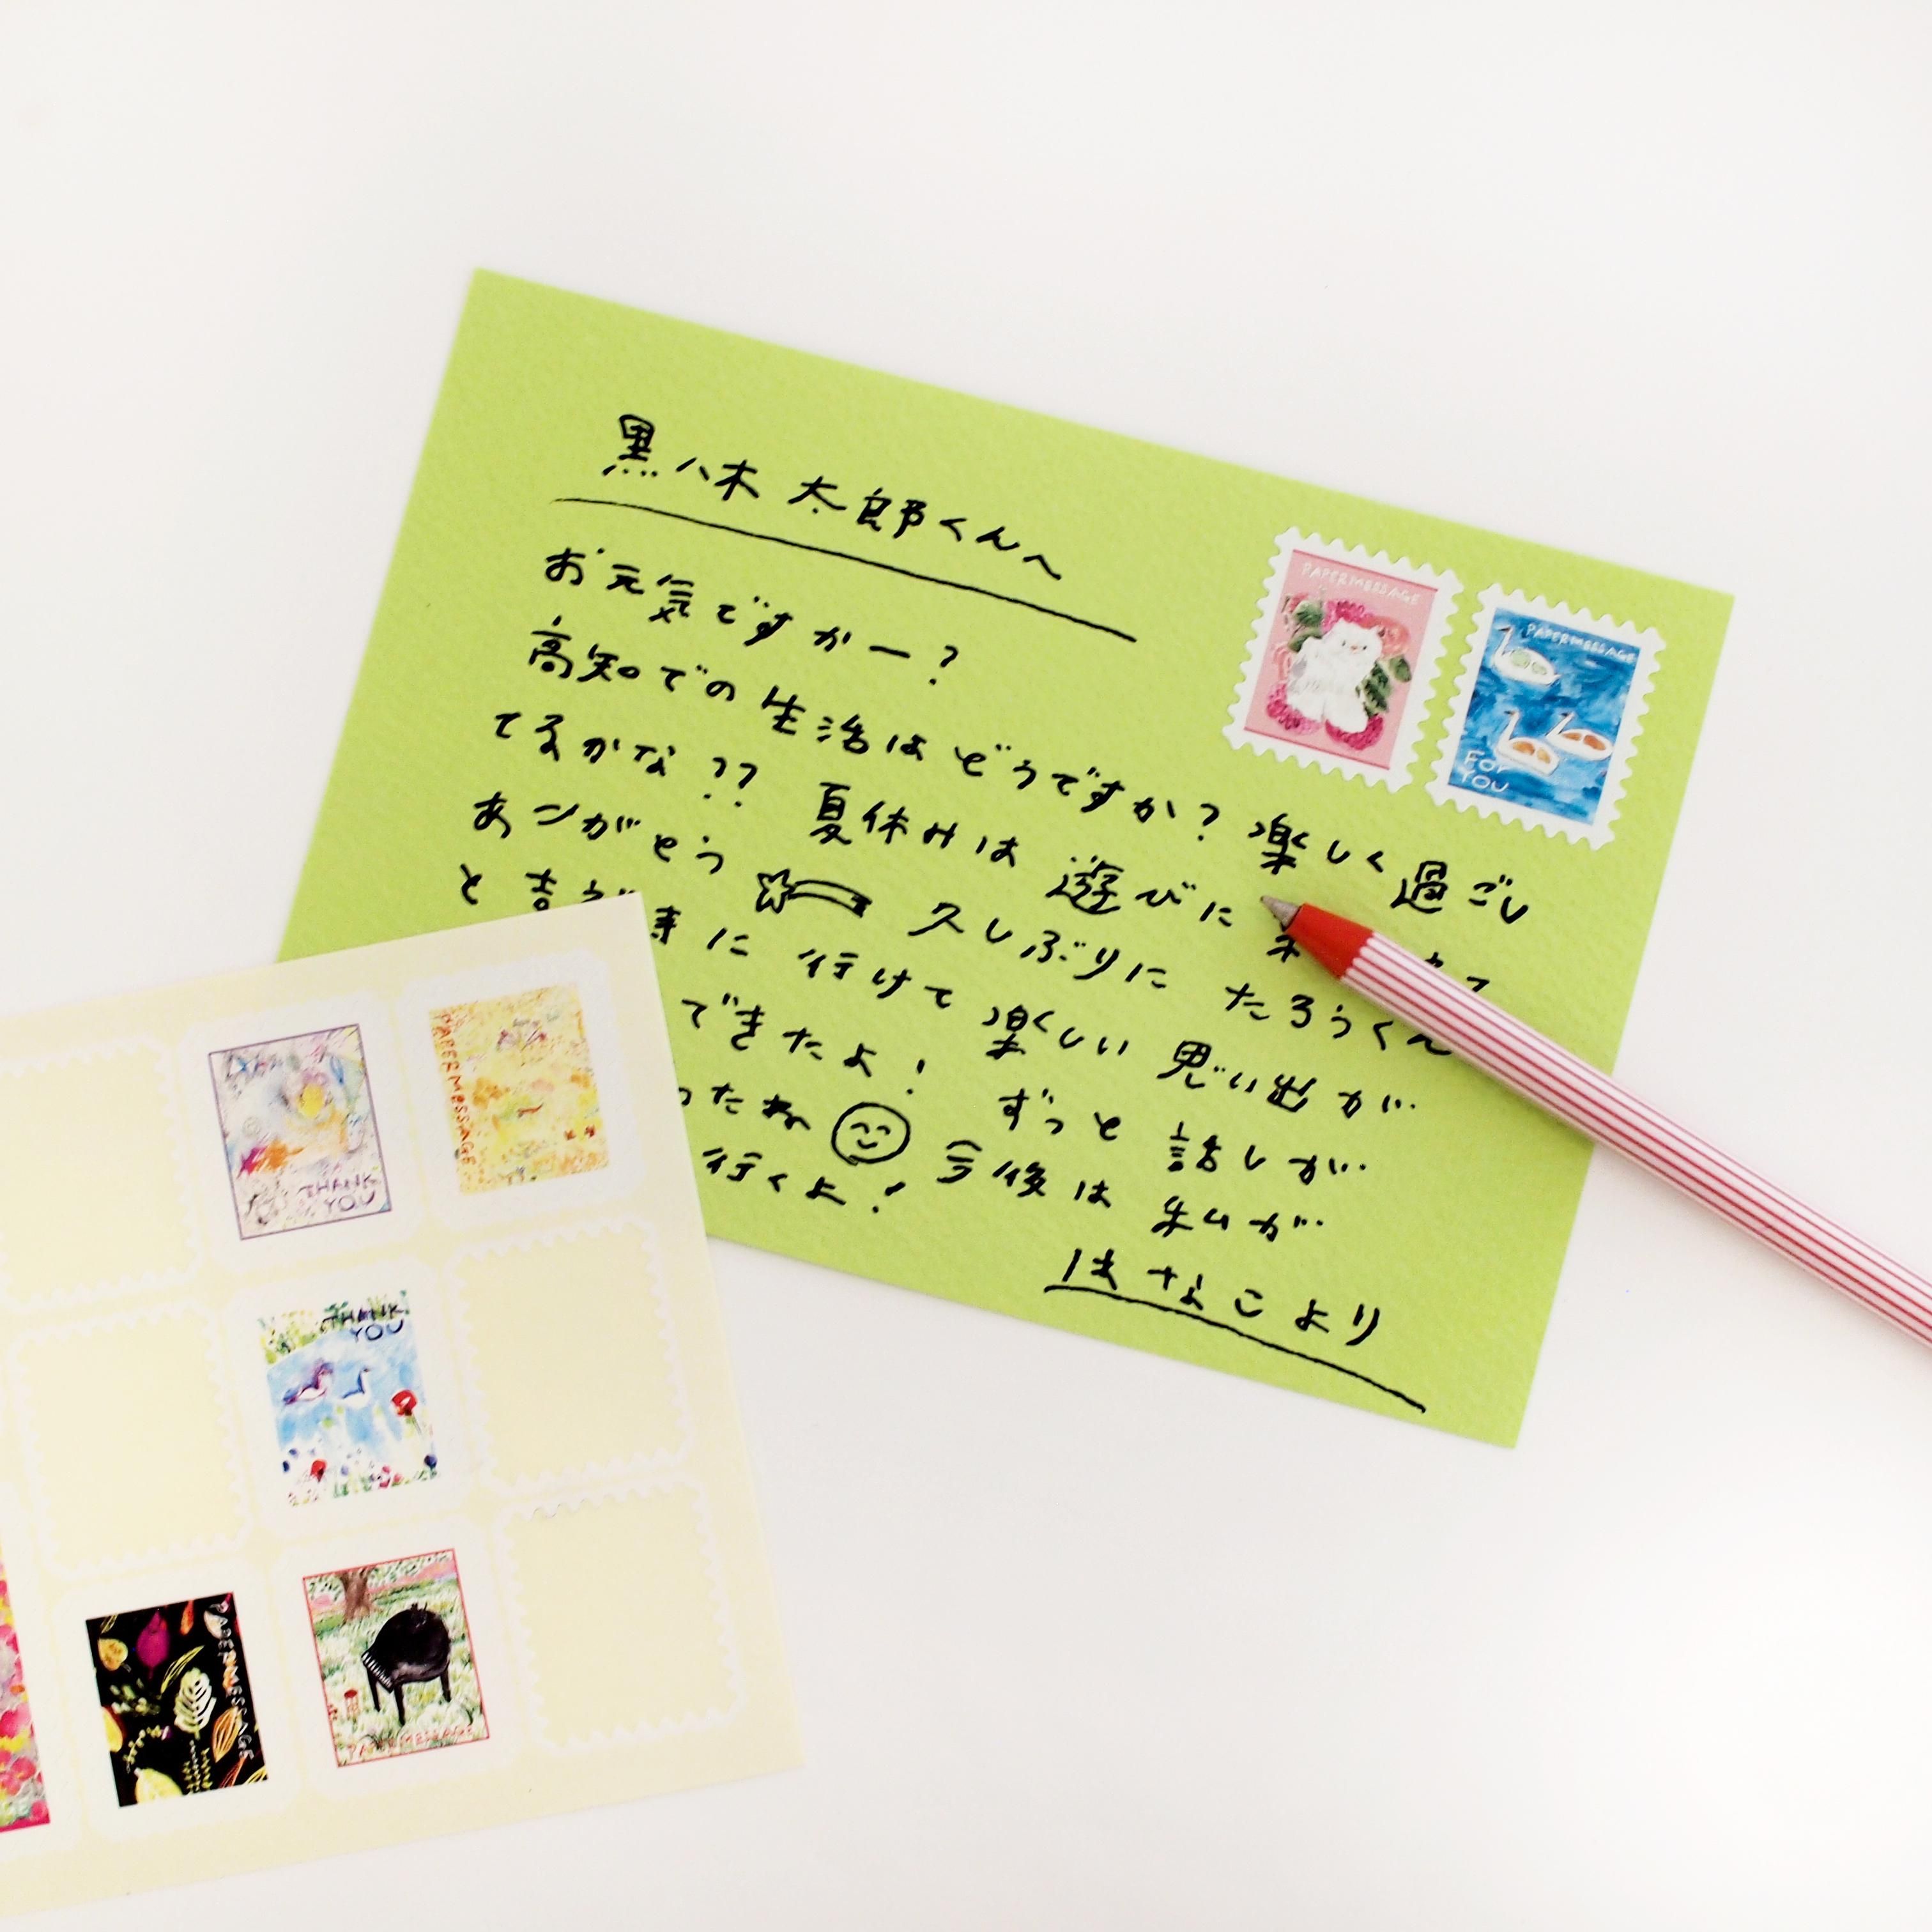 黒八木 太郎くんへ
お元気ですかー?
高知での生活はどうですか? 楽しく過ごし
てるかな?? 夏休みは 遊びに
ありがとう 久しぶりに たろうくん
と に 行けて 楽しい 思い出が
できたよ! ずっと 話しが
ったね 今後は 私が
行くよ!
はなこより
PAPERMESSAGE
PAPERMESSAGE
FOR
YOU
THANK
YOU
PAPERMESSAGE
THANK
YOU
PAPERMESSAGE
PAPERMESSAGE